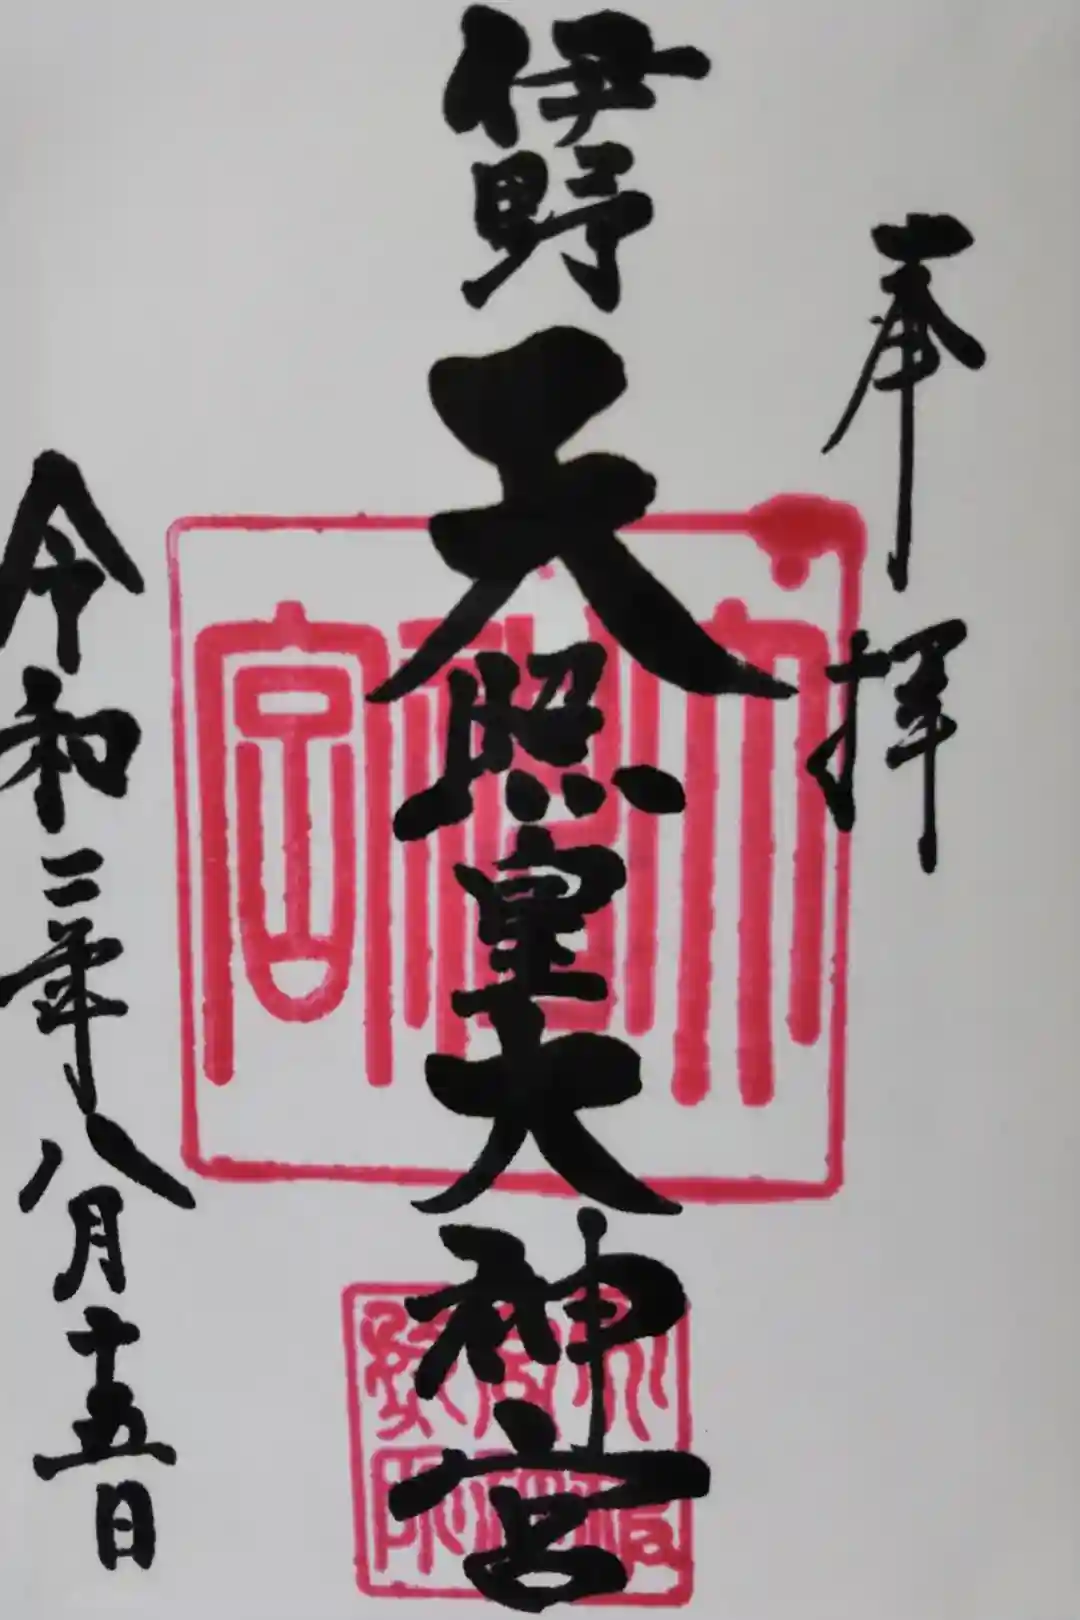 奉拝
伊野
天照皇大神宮
令和二年八月十五日